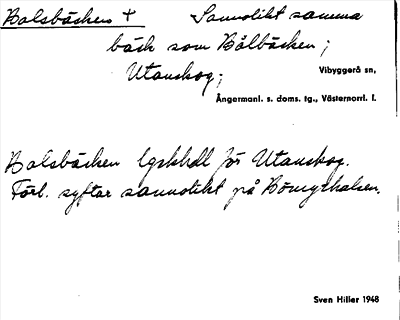 Balsbäcken + Sannolikt samma
bäck som Bålbäcken;
Utanskog;
Vibyggerå sn,
Ångermanl. s. doms. tg., Västernorrl. l.
Balsbäcken lgskhdl för Utanskog.
Förl. syftar sannolikt på Bömyrhalsen.
Sven Hiller 1948